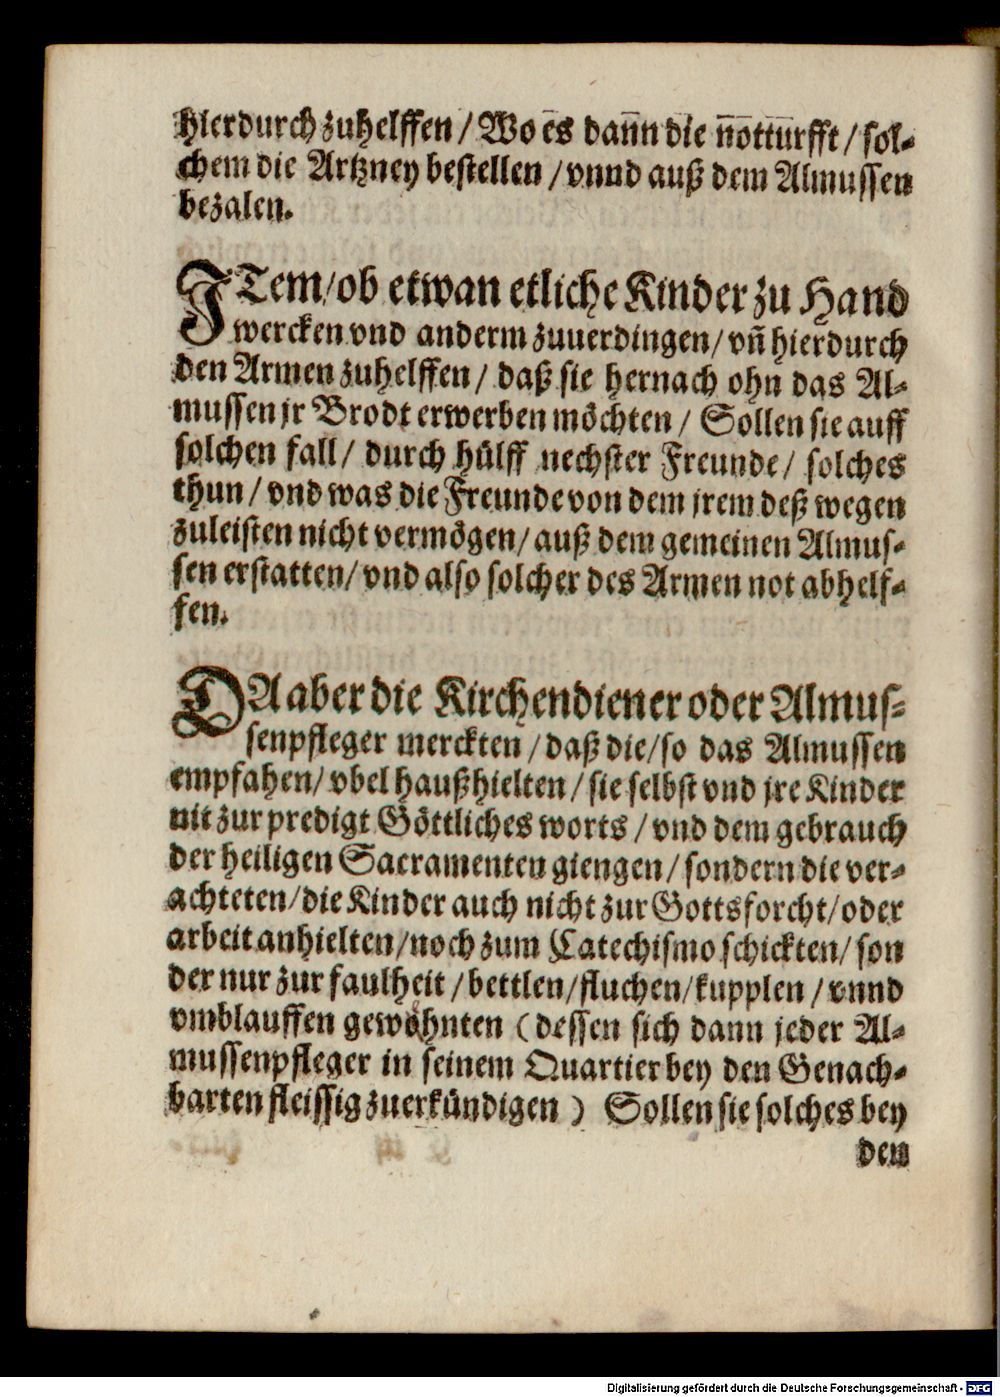 hierdurch zuhelffen / Wo es dann die notturfft / sol-
chem die Artzney bestellen / vnnd auß dem Almussen
bezalen.
JTem / ob etwan etliche Kinder zu Hand
wercken vnd anderm zuuerdingen / vñ hierdurch
den Armen zuhelffen / daß sie hernach ohn das Al-
mussen jr Brodt erwerben möchten / Sollen sie auff
solchen fall / durch hülff nechster Freunde / solches
thun / vnd was die Freunde von dem jrem deß wegen
zuleisten nicht vermögen / auß dem gemeinen Almus-
sen erstatten / vnd also solcher des Armen not abhelf-
fen.
DA aber die Kirchendiener oder Almus-
senpfleger merckten / daß die / so das Almussen
empfahen / vbel haußhielten / sie selbst vnd jre Kinder
nit zur predigt Göttliches worts / vnd dem gebrauch
der heiligen Sacramenten giengen / sondern die ver-
achteten / die Kinder auch nicht zur Gottsforcht / oder
arbeit anhielten / noch zum Catechismo schickten / son
der nur zur faulheit / bettlen / fluchen / kupplen / vnnd
vmblauffen gewöhnten ( dessen sich dann jeder Al-
mussenpfleger in seinem Quartier bey den Genach-
barten fleissig zuerkündigen ) Sollen sie solches bey
den
Digitalisierung gefördert durch die Deutsche Forschungsgemeinschaft - DFG